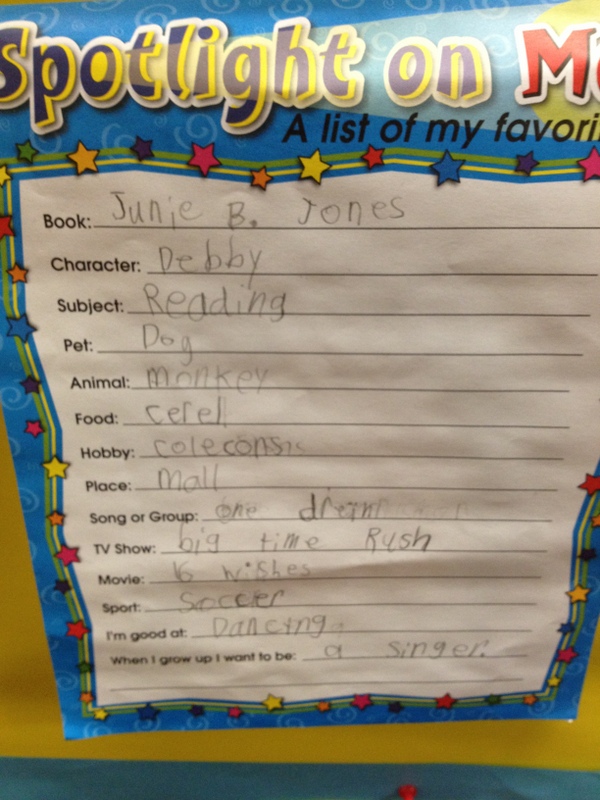 Spotlight on Me
A list of my favori
Book: Junie B. Jones
Character: Debby
Subject: Reading
Pet: Dog
Animal: monkey
Food: cerell
Hobby:
Place: Mall
Song or Group: one
TV Show: big time Rush
Movie: 16 wishes
Sport: Soccer
I'm good at: Dancing
When I grow up I want to be: a singer.